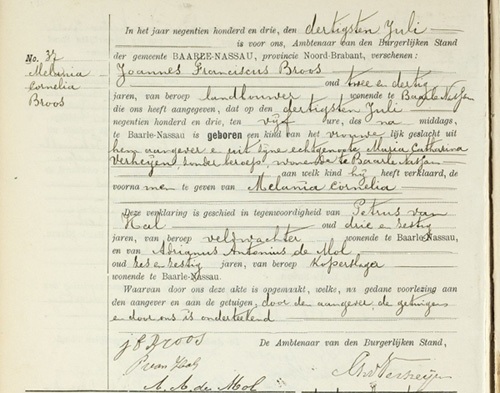 In het jaar negentien honderd en drie, den dertigsten Juli
is voor ons, Ambtenaar van den Burgerlijken Stand
der gemeente BAARLE-NASSAU, provincie Noord-Brabant, verschenen:
No. 37
Melania
Cornelia
Broos
Joannes Franciscus Broos
oud twee en dertig
jaren, van beroep landbouwer wonende te Baarle-Nassau
die ons heeft aangegeven, dat op den dertigsten Juli
negentien honderd en drie, ten vijf ure, des na middags,
te Baarle-Nassau is geboren een kind van het vrouwelijk geslacht uit
hem aangever en uit zijne echtgenoote Maria Catharina
Verheijen, zonder beroep, wonende te Baarle-Nassau
aan welk kind hij heeft verklaard, de
voornamen te geven van Melania Cornelia
Deze verklaring is geschied in tegenwoordigheid van Petrus van
Hal oud drie en zestig
jaren, van beroep veldwachter wonende te Baarle-Nassau,
en van Adrianus Antonius de Mol
oud zes en zestig jaren, van beroep
wonende te Baarle-Nassau.
Waarvan door ons deze akte is opgemaakt, welke, na gedane voorlezing aan
den aangever en aan de getuigen, door den aangever, de getuigen
en door ons is onderteekend
De Ambtenaar van den Burgerlijken Stand,
J F Broos
P van Hal
A. A. de Mol